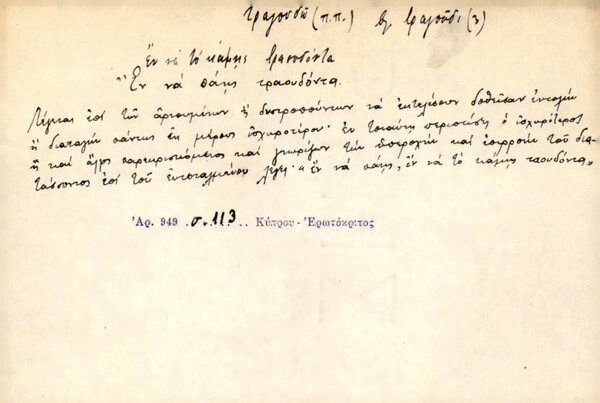 τραγουδῶ (π.π.) βλ. τραγοῦδι (3)
Ἐν νὰ τὸ κάμῃς τραουδόντα
Ἐν νὰ πάῃς τραουδόντα.
Λέγεται ἐπὶ τῶν ἀρνουμένων ἢ δυστροπούντων νὰ ἐκτελέσουν δοθεῖσαν ἐντολὴν
ἢ διαταγὴν πάντως ἐκ μέρους ἰσχυροτέρου· ἐν τοιαύτῃ περιπτώσει ὁ ἰσχυρότερος
ἢ καὶ ἄλλος παρευρισκόμενος καὶ γνωρίζων τὴν ὑπεροχὴν καὶ ἐπιρροὴν τοῦ δια-
τάσσοντος ἐπὶ τοῦ ἐντεταλμένου λέγει· "ἐν νὰ πάῃς, ἐν νὰ τὸ κάμῃς τραουδόντα"
Ἀρ. 949 σ. 113 Κύπρου - Ἐρωτόκριτος